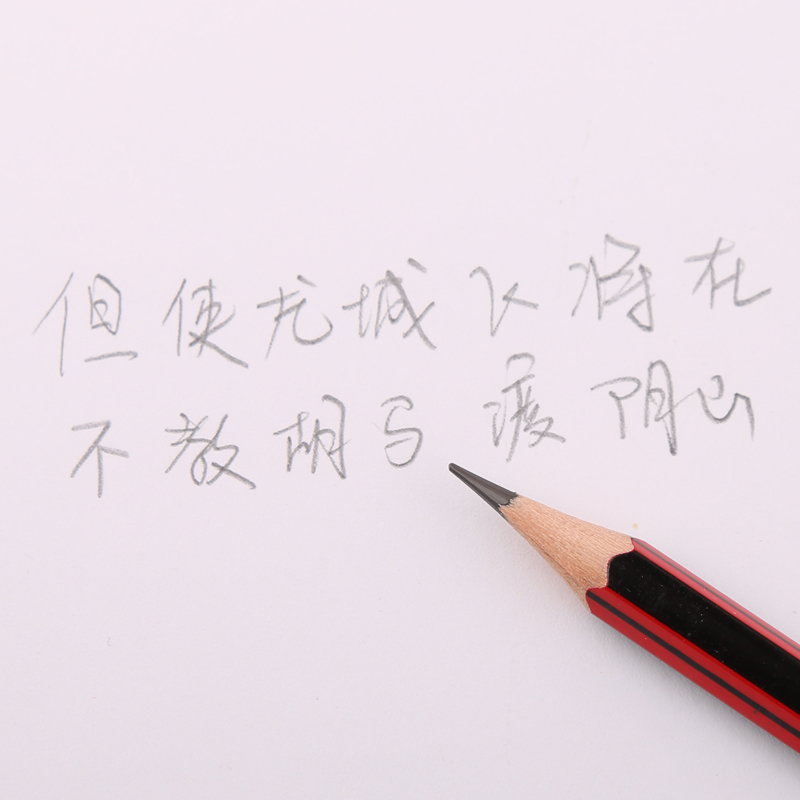 但使龙城飞将在
不教胡马渡阴山